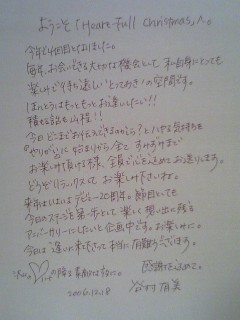 ようこそ「Heart-Full Christmas」へ。
今年で4回目となりました。
毎年、お会いできる大切な機会として私自身にとっても
楽しみで待ち遠しい"とっておき"の空間です。
ほんとうはもっともっとお逢いしたい!!
積もる話も山程!!
今日どこまでお伝えできるかしら?とはやる気持ちを
お楽しみ頂ける様、全員で心を込めてお送りします。
どうぞリラックスしてお楽しみ下さいね。
来年はいよいよデビュー20周年。節目としても
今日のステージを第一歩として楽しく想い出に残る
アニバーサリーにしたいと企画中です。お楽しみに。
今日は逢いに来て下さって本当に有難うございます。
の降る素敵な夜に。
感謝を込めて。
2006.12.18
谷村有美